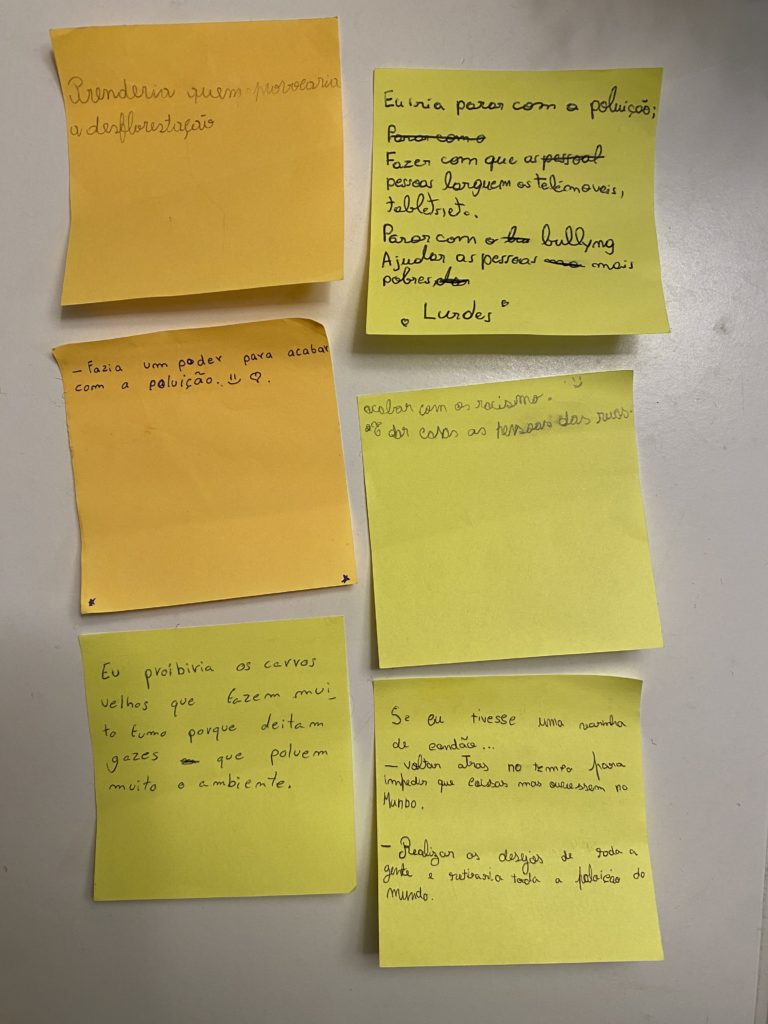 Prenderia quem provocaria
a desflorestação
Eu iria parar com a poluição;
Parar com o
Fazer com que as pessoal
pessoas larguem os telémoveis,
tablets, etc.
Parar com o bu bullyng
Ajudar as pessoas mais
pobres
Lurdes
- Fazia um poder para acabar
com a poluição.
acabar com os racismo.
dar casas as pessoas das ruas.
Eu proibiria os carros
velhos que fazem mui_
to fumo porque deitam
gazes que poluem
muito o ambiente.
Se eu tivesse uma varinha
de condão...
- voltar atras no tempo para
impedir que coisas mas ouvessem no
Mundo.
- Realizar os desejos de toda a
gente e retiraria toda a poluição do
mundo.